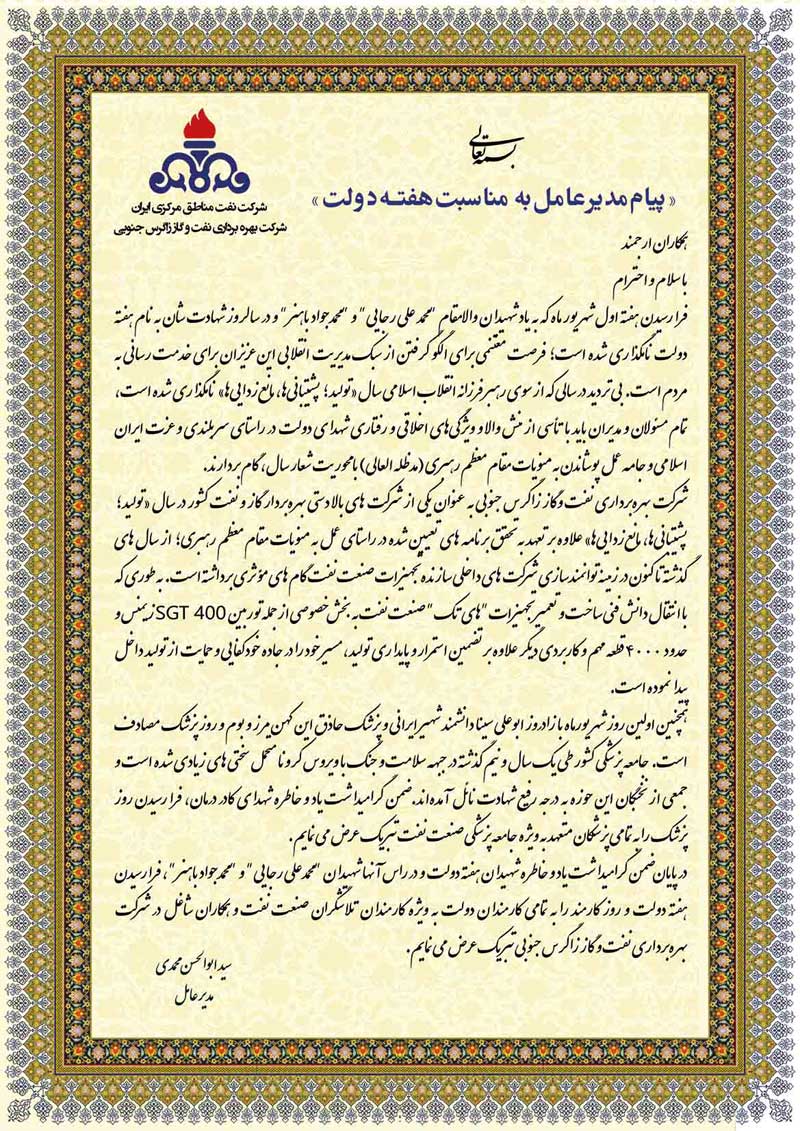 بسمه تعالی
شرکت نفت مناطق مرکزی ایران
شرکت بهره برداری نفت و گاز زاگرس جنوبی
« پیام مدیر عامل به مناسبت هفته دولت »
همکاران ارجمند
با سلام و احترام
فرا رسیدن هفته اول شهریور ماه که به یاد شهیدان والامقام "محمد علی رجایی" و "محمد جواد باهنر" و در سالروز شهادت شان به نام هفته
دولت نامگذاری شده است؛ فرصت مغتنمی برای الگو گرفتن از سبک مدیریت انقلابی این عزیزان برای خدمت رسانی به
مردم است. بی تردید در سالی که از سوی رهبر فرزانه انقلاب اسلامی سال «تولید؛ پشتیبانی ها، مانع زدایی ها» نامگذاری شده است،
تمام مسئولان و مدیران باید با تأسی از منش والا و ویژگی های اخلاقی و رفتاری شهدای دولت در راستای سربلندی و عزت ایران
اسلامی و جامه عمل پوشاندن به منویات مقام معظم رهبری (مدظله العالی) با محوریت شعار سال، گام بردارند.
شرکت بهره برداری نفت و گاز زاگرس جنوبی به عنوان یکی از شرکت های بالادستی بهره بردار گاز و نفت کشور در سال «تولید؛
پشتیبانی ها، مانع زدایی ها» علاوه بر تعهد به تحقق برنامه های تعیین شده در راستای عمل به منویات مقام معظم رهبری؛ از سال های
گذشته تاکنون در زمینه توانمندسازی شرکت های داخلی سازنده تجهیزات صنعت نفت گام های مؤثری برداشته است. به طوری که
با انتقال دانش فنی ساخت و تعمیر تجهیزات "های تک" صنعت نفت به بخش خصوصی از جمله توربین SGT 400 زیمنس و
حدود ۴۰۰۰ قطعه مهم و کاربردی دیگر علاوه بر تضمین استمرار و پایداری تولید، مسیر خود را در جاده خودکفایی و حمایت از تولید داخل
پیدا نموده است.
همچنین اولین روز شهریور ماه با زادروز ابوعلی سینا دانشمند شهیر ایرانی و پزشک حاذق این کهن مرز و بوم و روز پزشک مصادف
است. جامعه پزشکی کشور طی یک سال و نیم گذشته در جبهه سلامت و جنگ با ویروس کرونا متحمل سختی های زیادی شده است و
جمعی از نخبگان این حوزه به درجه رفیع شهادت نائل آمده اند. ضمن گرامیداشت یاد و خاطره شهدای کادر درمان، فرا رسیدن روز
پزشک را به تمامی پزشکان متعهد به ویژه جامعه پزشکی صنعت نفت تبریک عرض می نمایم.
در پایان ضمن گرامیداشت یاد و خاطره شهیدان هفته دولت و در راس آنها شهیدان "محمد علی رجایی" و "محمد جواد باهنر"، فرا رسیدن
هفته دولت و روز کارمند را به تمامی کارمندان دولت به ویژه کارمندان تلاشگران صنعت نفت و همکاران شاغل در شرکت
بهره برداری نفت و گاز زاگرس جنوبی تبریک عرض می نمایم.
سید ابوالحسن محمدی
مدیر عامل